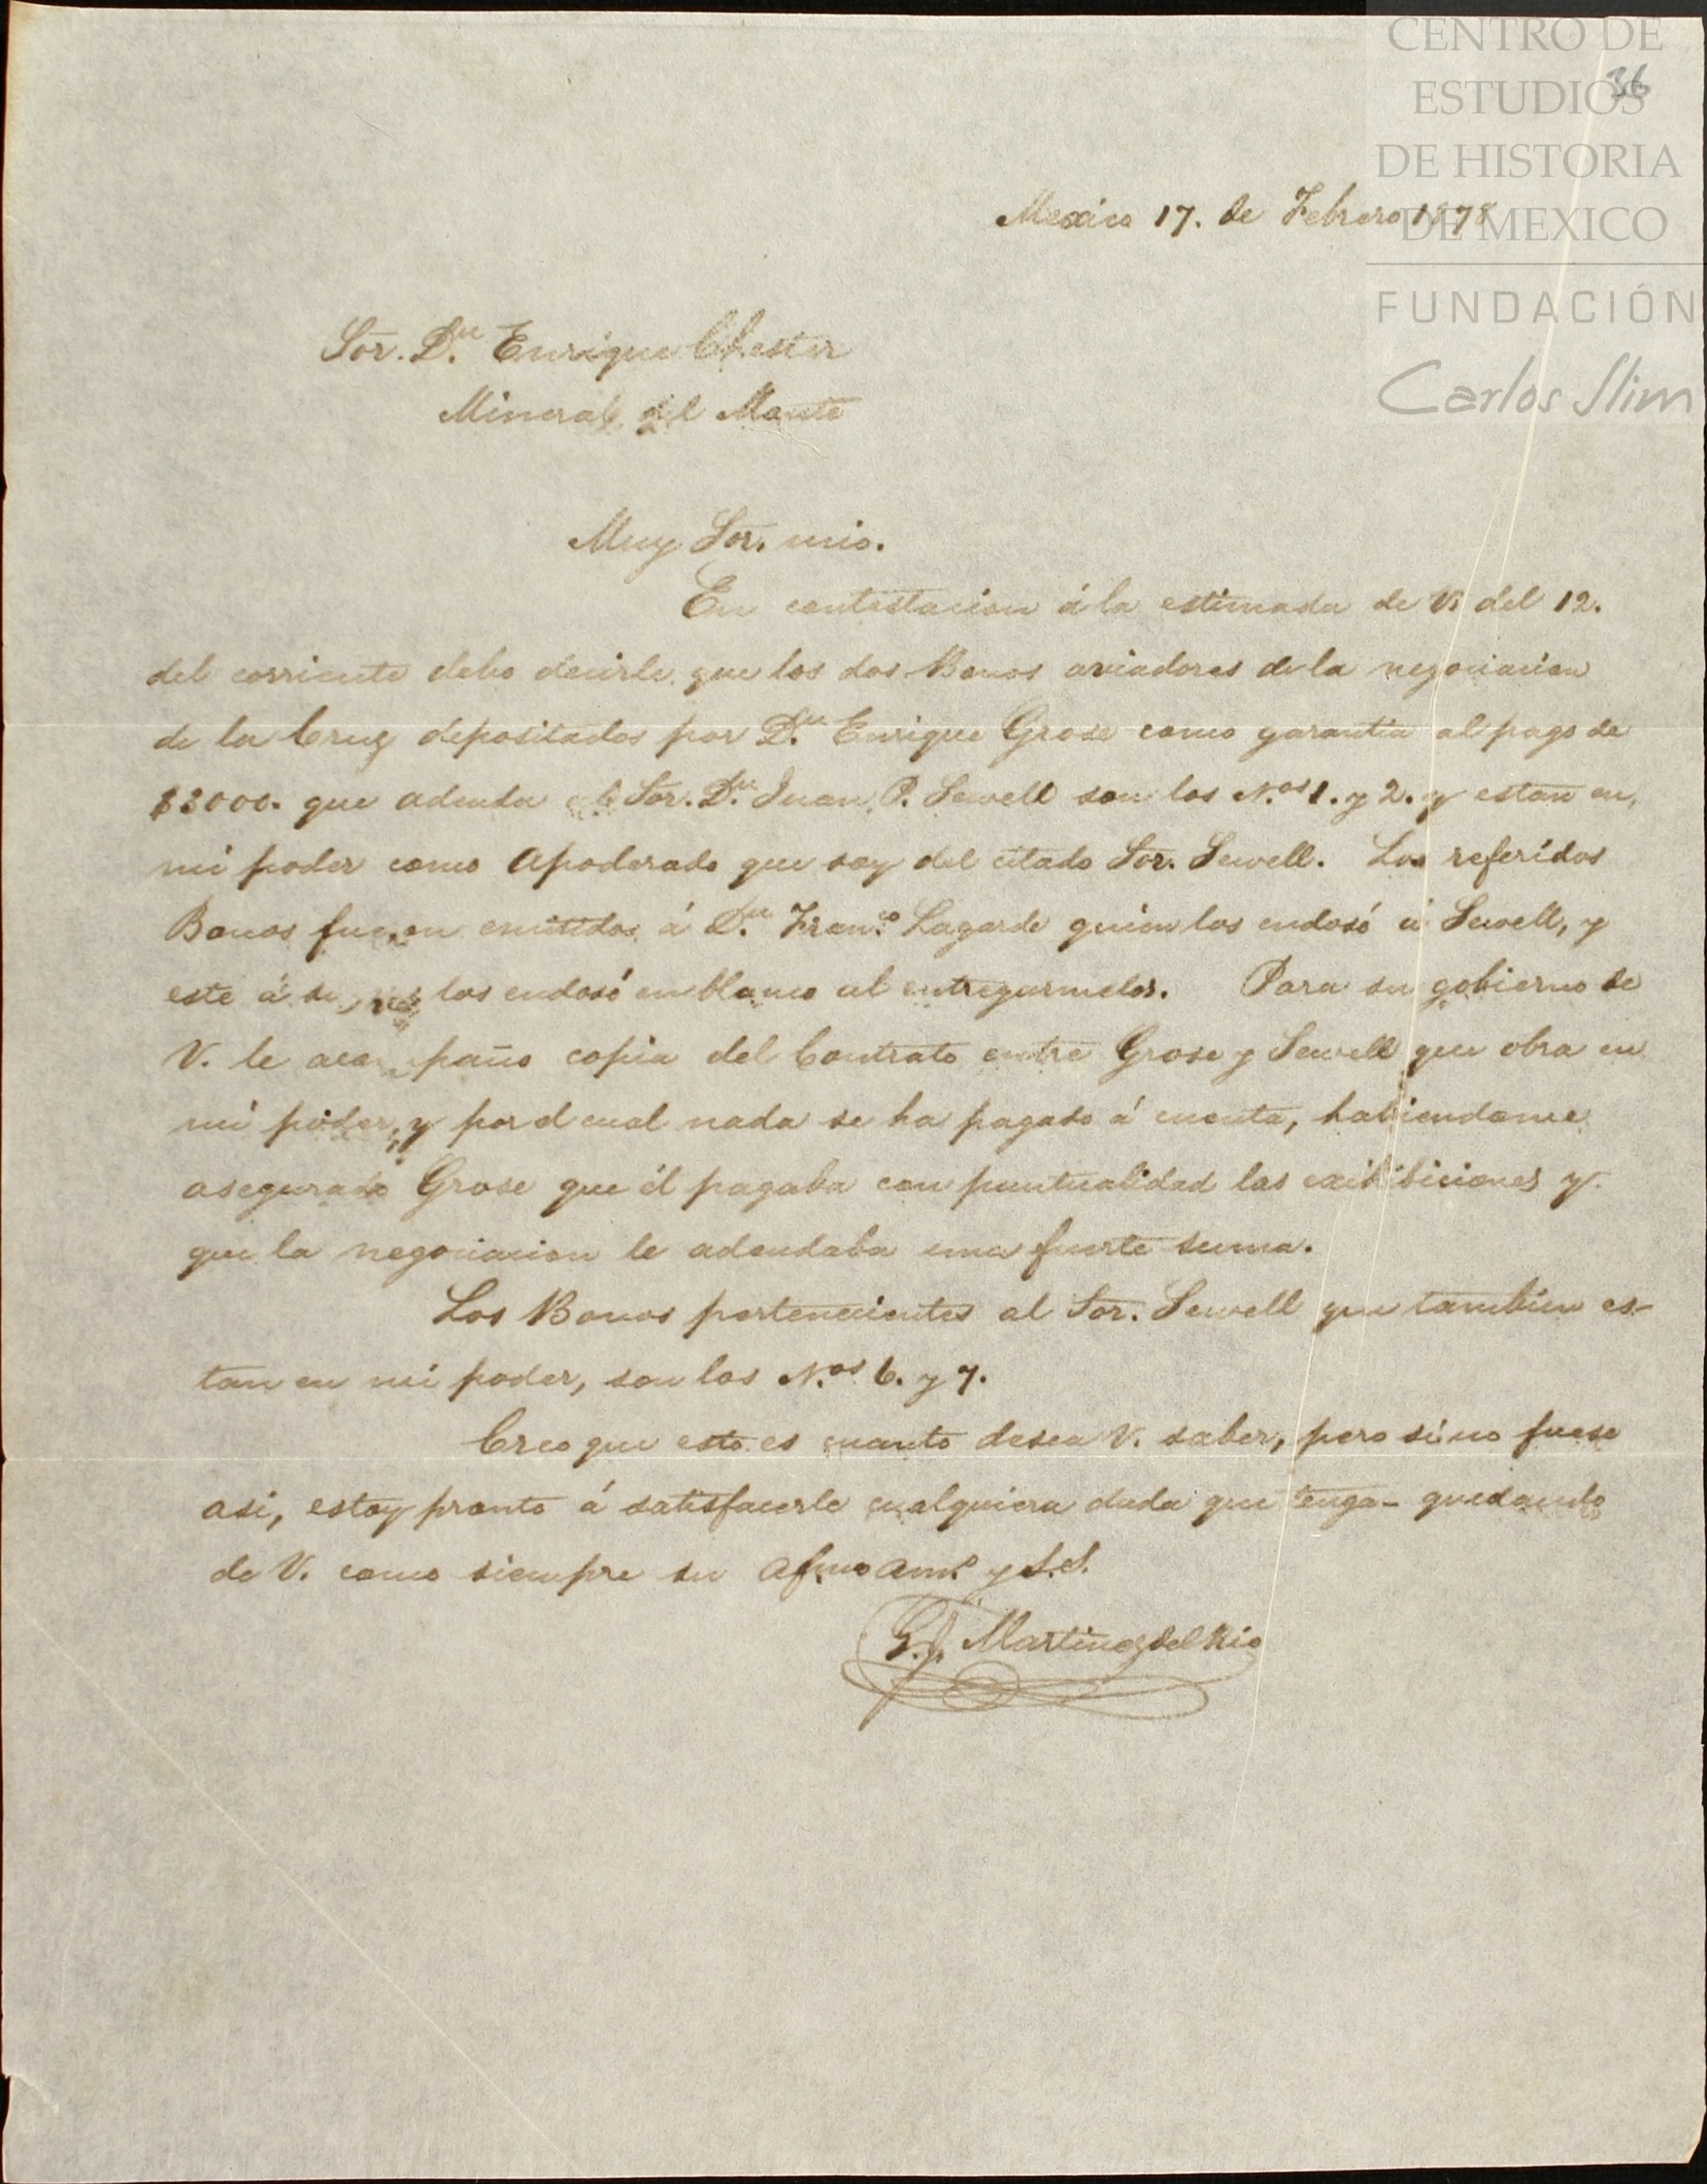 CENTRO DE
ESTUDIOS
DE HISTORIA
DE MEXICO
FUNDACIÓN
Carlos Slim
36
Mexico 17. de Febrero 1878
Sor. Dn. Enrique Chester
Mineral del Monte
Muy Sor. mio.
En contestacion á la estimada de V. del 12.
del corriente debo decirle que los dos Bonos aviadores de la negociacion
de la Cruz depositados por Dn. Enrique Grose como garantia al pago de
$3000. que adeuda al Sor. Dn. Juan P. Sewell son los N.os 1. y 2. y estan en
mi poder como Apoderado que soy del citado Sor. Sewell. Los referidos
Bonos fueron emitidos á Dn. Fran.co Lagarde quien los endosó á Sewell, y
este á su vez los endosó en blanco al entregarmelos. Para su gobierno de
V. le acompaño copia del Contrato entre Grose y Sewell que obra en
mi poder, y por el cual nada se ha pagado á cuenta, habiendome
asegurado Grose que él pagaba con puntualidad las exihibiciones y
que la negociacion le adeudaba una fuerte suma.
Los Bonos pertenecientes al Sor. Sewell que tambien es-
tan en mi poder, son los N.os 6. y 7.
Creo que esto es cuanto desea V. saber, pero si no fuese
asi, estoy pronto á satisfacerle cualquiera duda que tenga - quedando
de V. como siempre su afmo am.o y S.S.
G. J. Martinez del Rio